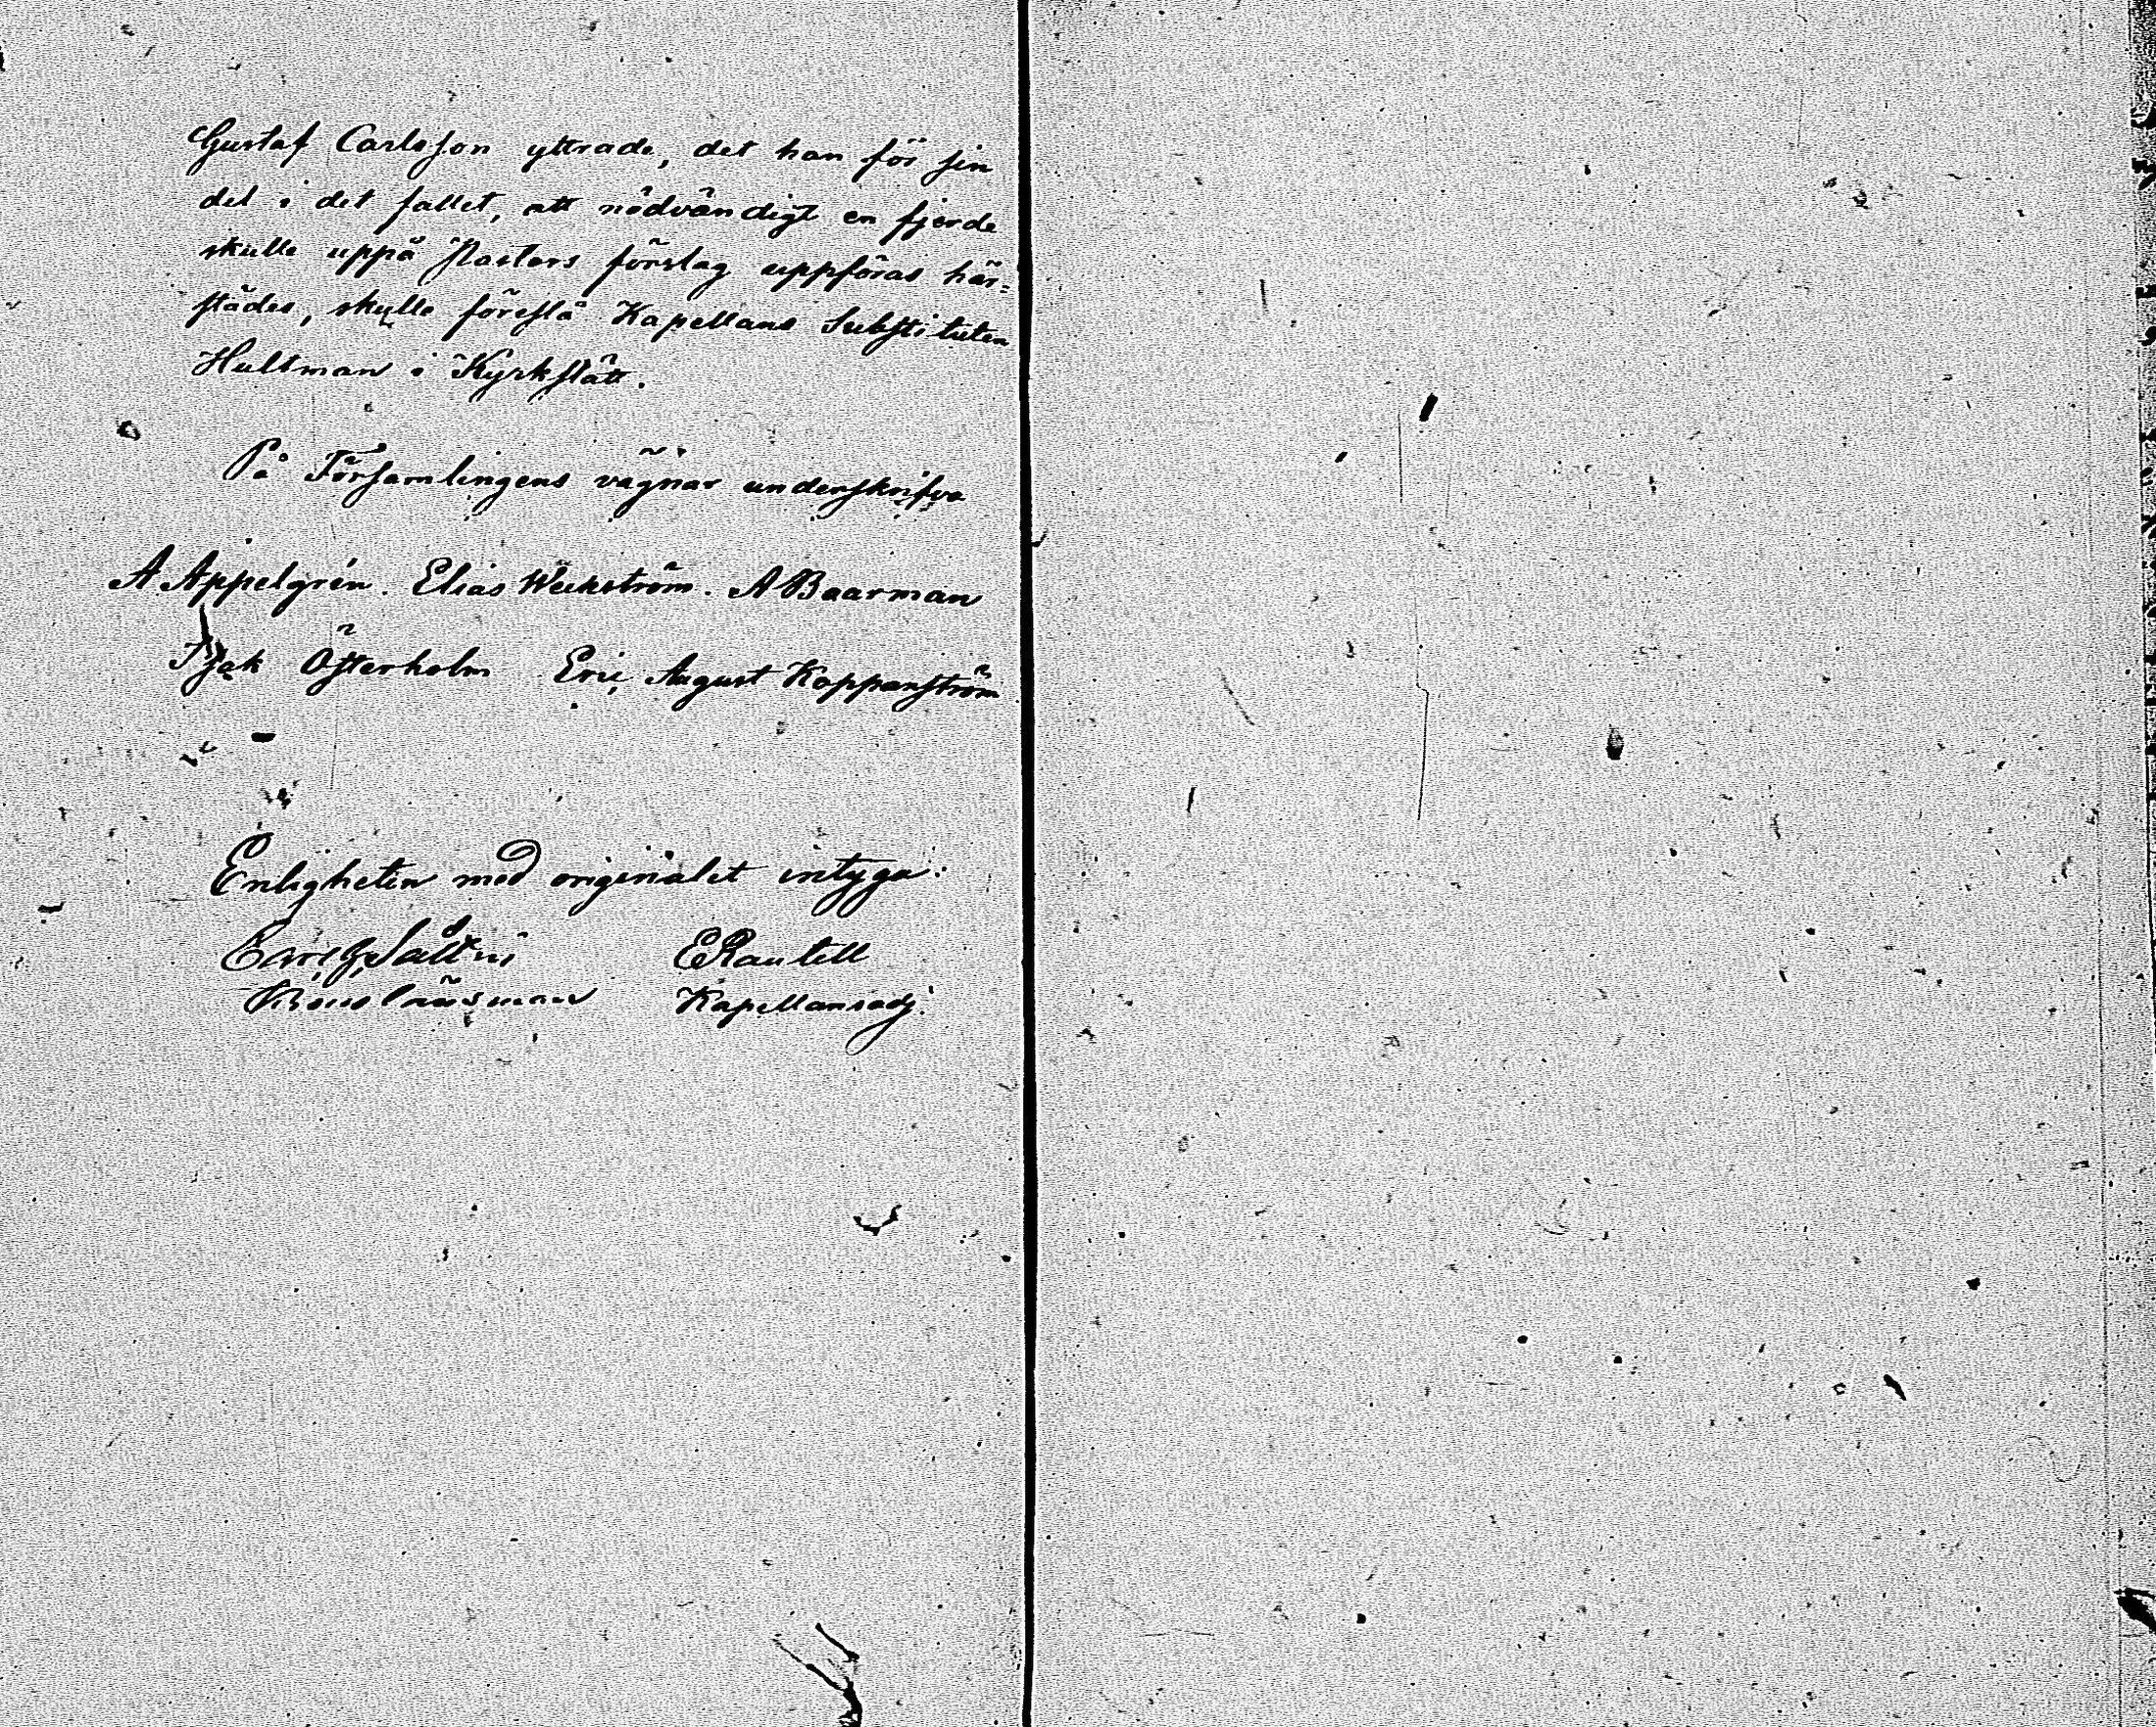 Gustaf Carlsson yttrade, det han för sin
del i det fallet, att nödvändigt en fjerde
skulle uppå Pastors förslag uppföras här-
städes, skulle föreslå Kapellans Substituten
Hultman i Kyrkslätt.
På Församlingens vägnar underskrifva
A Appelgrén. Elias Weckström. A Baarman
Isak Österholm Eric August Koppanström
Enligheten med originalet intyga:
Carl G. ERautell
Kronolänsman Kapellansadj: